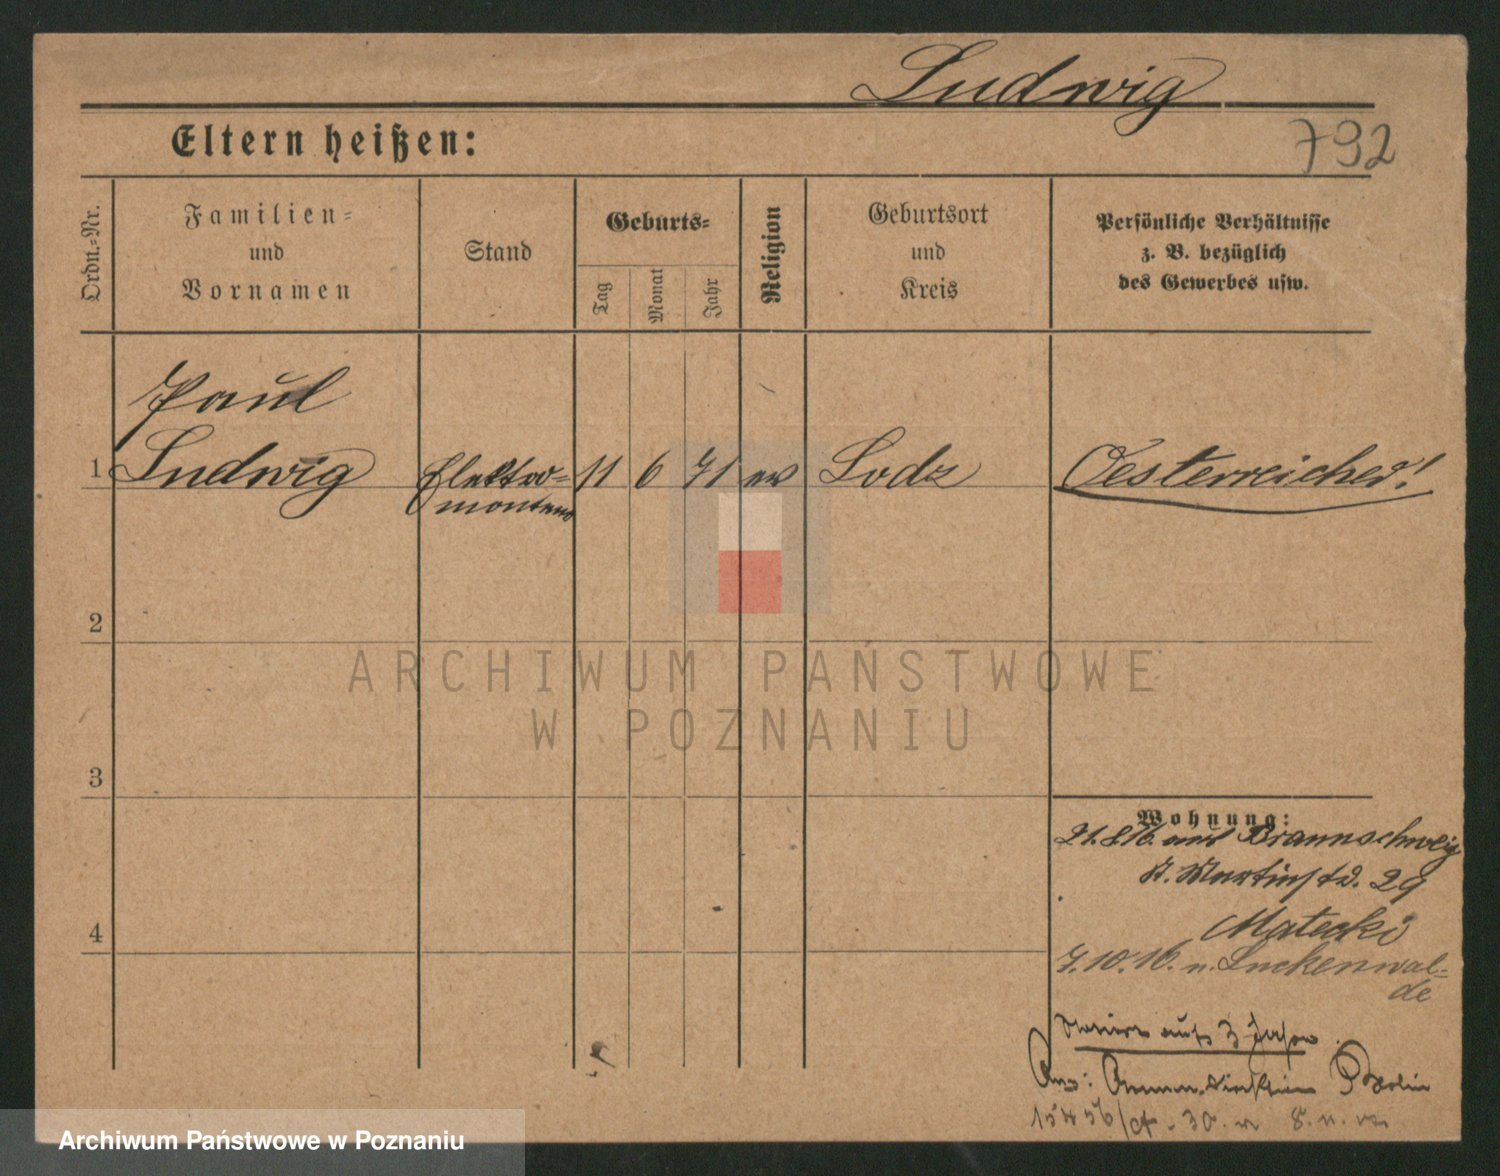 Ludwig
792
Eltern heißen:
Ordn.=Nr.
Familien=
und
Vornamen
Stand
Geburts=
Tag
Monat
Jahr
Religion
Geburtsort
und
Kreis
Persönliche Verhältnisse
z. B. bezüglich
des Gewerbes usw.
Paul
1 Ludwig Elektro= 11 6 71 ev Lodz Oesterreicher!
monteur
2
ARCHIWUM PAŃSTWOWE
W POZNANIU
3
Wohnung:
21.8.16. aus Braunschweig
St. Martinstr. 29
Matecki
7.10.16. n. Luckenwal=
de
3
Archiwum Państwowe w Poznaniu
4